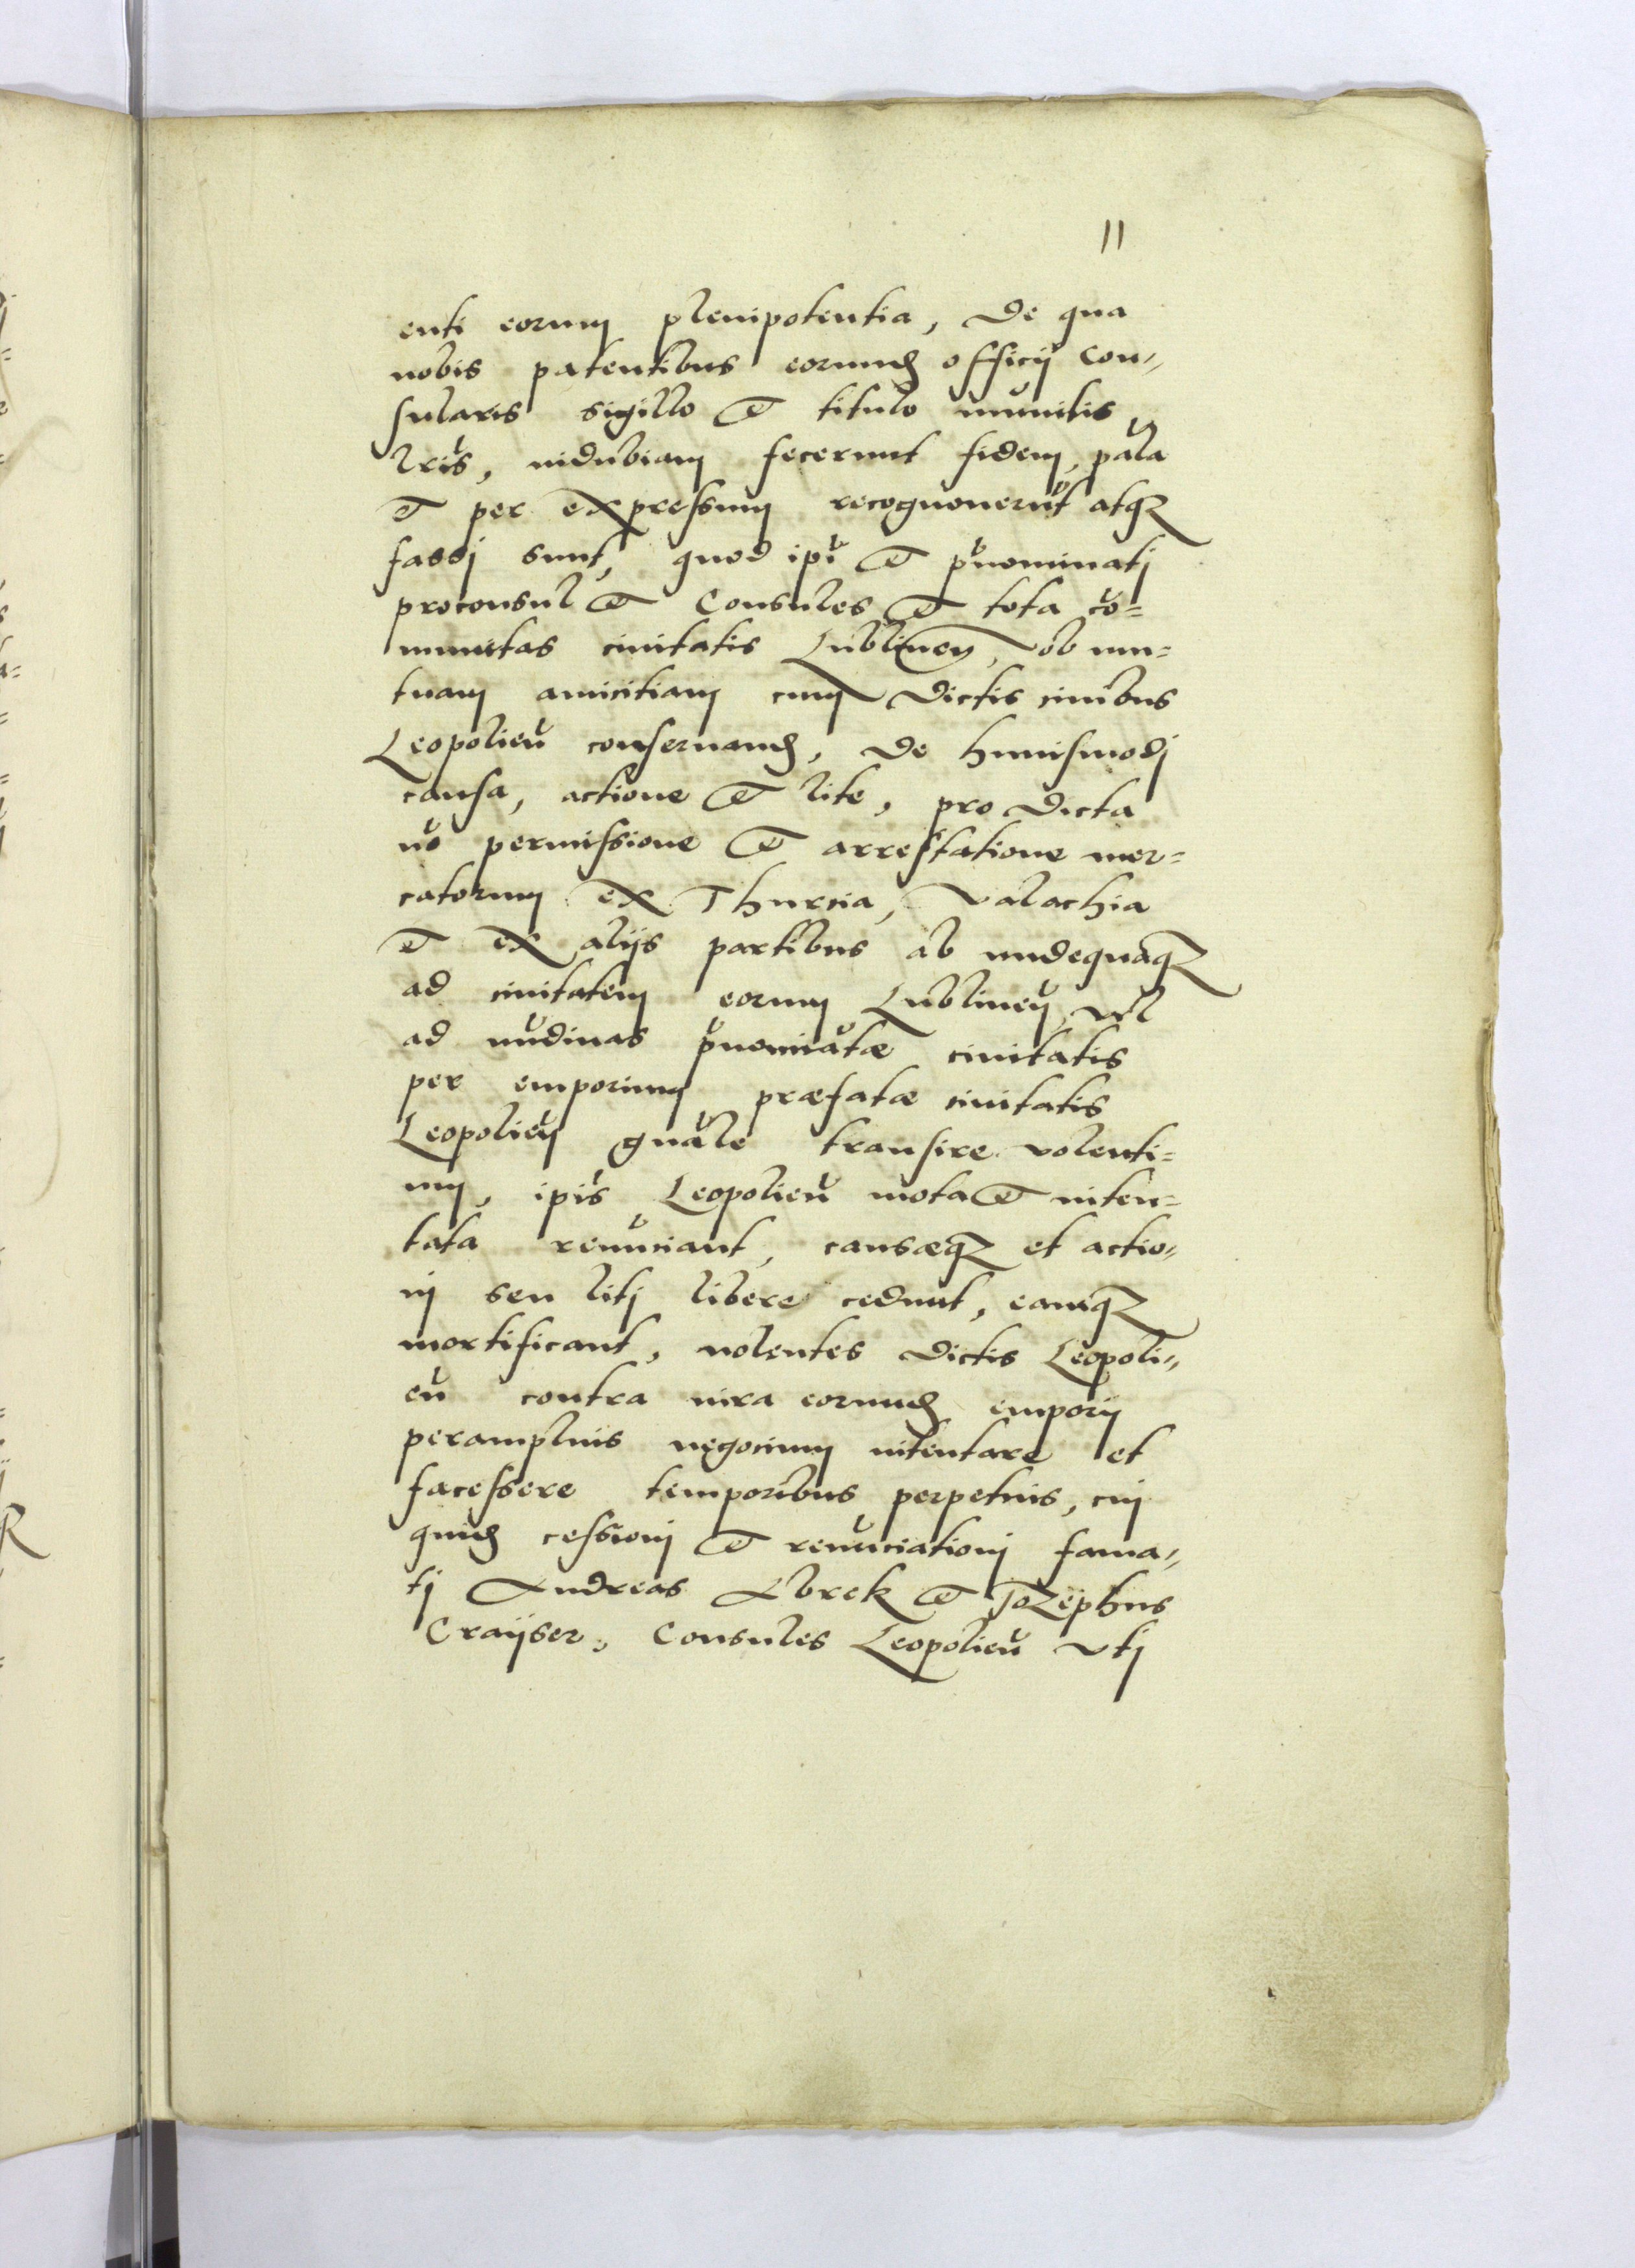 11
enti eorum plenipotentia, de qua
nobis patentibus eorund officij Con„
sularis sigillo et titulo munitis
lris, indubiam fecerunt fidem, pala
et per expressum recognouerūt atqꝫ
fassi sunt, quod ipi et pnominatj
proconsul et Consules et tota cō=
munitas ciuitatis Lublinen, ob mu=
tuam amicitiam cum dictis ciuibus
Leopolien conseruand, de huiusmodj
causa, actione et lite, pro dicta
nō permissione et arrestatione mer=
catorum ex Thurcia, Valachia
et ex alijs partibus ab undequaqꝫ
ad ciuitatem eorum Lublinen, vel
ad nūdinas pnominatæ ciuitatis
per emporium præfatæ ciuitatis
Leopolien gnale transire volenti=
um, ipis Leopolien mota et inten=
tata renūciant, causæqꝫ et actio„
nj seu litj libere cedunt, eamqꝫ
mortificant, nolentes dictis Leopoli„
en contra iura eorund emporij
peramplius negocium intentare et
facessere temporibus perpetuis, cuj
quid cessionj et renūciationj fama„
tj Andreas Abrek et Jozephus
Crayser, Consules Leopolien vtj